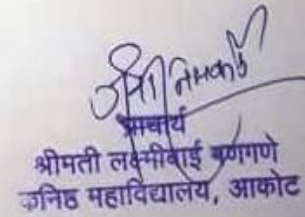 प्राचार्य
श्रीमती लक्ष्मीबाई गणगणे
कनिष्ठ महाविद्यालय, आकोट